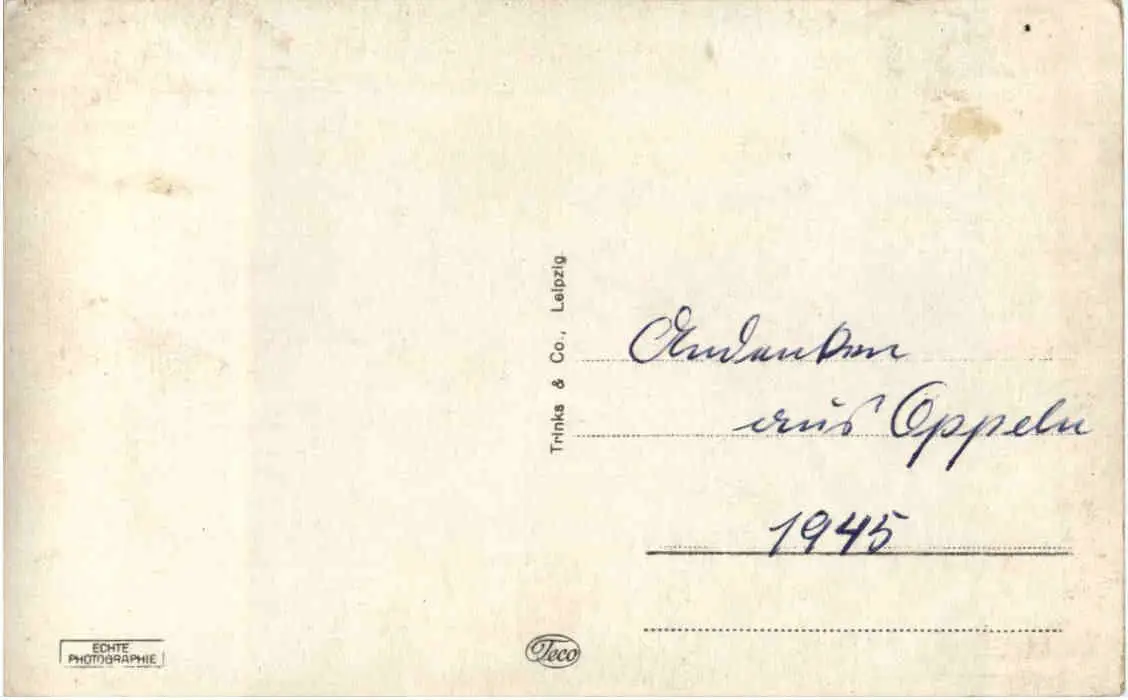 Trinks & Co., Leipzig.
Andenken
aus Oppeln
1945
ECHTE
PHOTOGRAPHIE
Teco